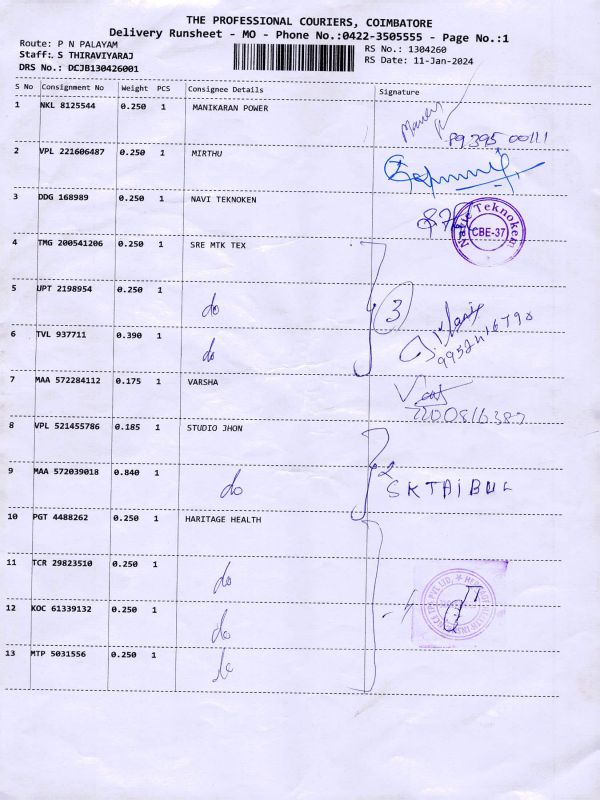 THE PROFESSIONAL COURIERS, COIMBATORE
Delivery Runsheet - MO - Phone No.:0422-3505555 - Page No.:1
Route: P N PALAYAM
Staff: S THIRAVIYARAJ
DRS No.: DCJB130426001
RS No.: 1304260
RS Date: 11-Jan-2024
S No Consignment No Weight PCS Consignee Details Signature
1 NKL 8125544 0.250 1 MANIKARAN POWER
2 VPL 221606487 0.250 1 MIRTHU
3 DDG 168989 0.250 1 NAVI TEKNOKEN
Teknoken CBE-37
4 TMG 200541206 0.250 1 SRE MTK TEX
5 UPT 2198954 0.250 1 do 3
6 TVL 937711 0.390 1 do
7 MAA 572284112 0.175 1 VARSHA
8 VPL 521455786 0.185 1 STUDIO JHON
9 MAA 572039018 0.840 1 do 2 SKTAIBUL
10 PGT 4488262 0.250 1 HARITAGE HEALTH
11 TCR 29823510 0.250 1 do
12 KOC 61339132 0.250 1 do
13 MTP 5031556 0.250 1 do